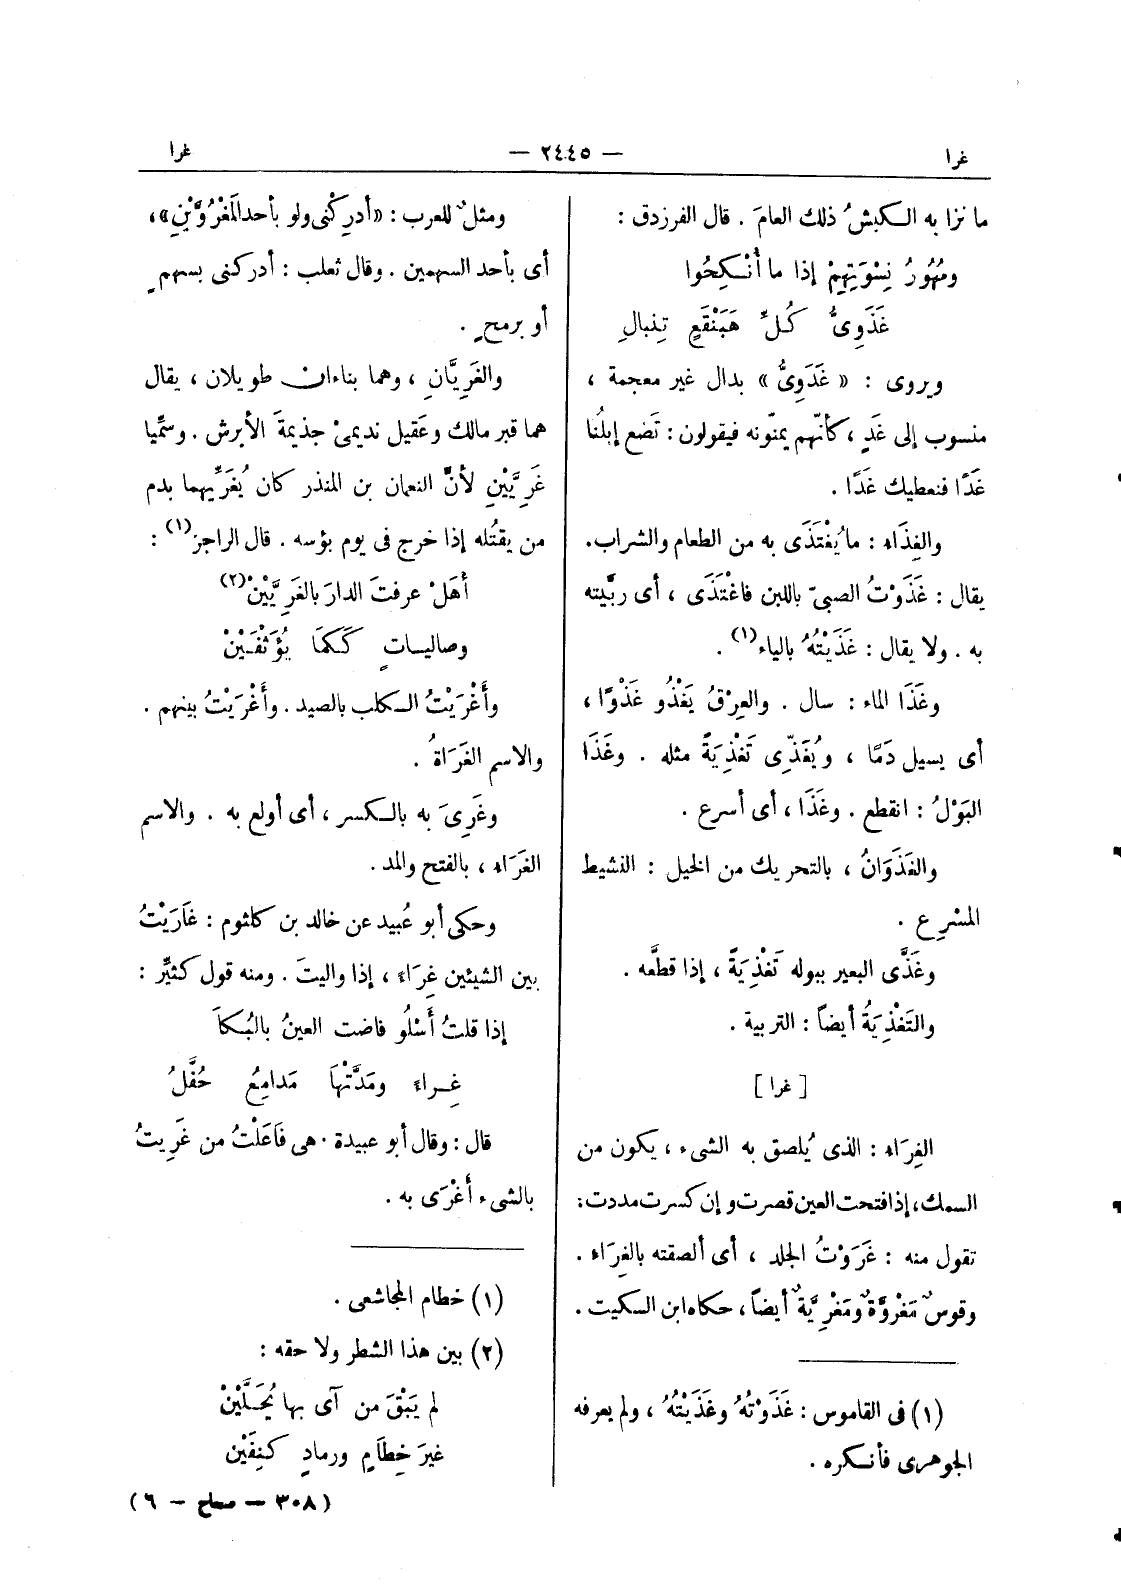 غرا
— ٢٤٤٥ —
غرا
ما نزا به الكبشُ ذلك العامَ . قال الفرزدق :
ومُهُورُ نِسْوَتِهِمْ إذا ما أَنْكِحُوا
غَذَوِىُّ كُلِّ هَبَنْقَعٍ تِنْبالِ
ويروى : « غَدَوِىُّ » بدال غير معجمة ،
منسوب إلى غَدٍ ، كأنّهم يمنّونه فيقولون : تَضع إبلُنا
غَدًا فنعطيك غَدًا .
والغِذَاء : ما يُغْتَذَى به من الطعام والشراب .
يقال : غَذَوْتُ الصبىّ باللبن فاغْتَذَى ، أى ربَّيته
به . ولا يقال : غَذَيْتُهُ بالياء (١) .
وغَذَا الماء : سال . والعِرْقُ يَغْذُو غَذْوًا ،
أى يسيل دَمًا ، ويُغَذِّى تَغْذِيَةً مثله . وغَذَا
البَوْلُ : انقطع . وغَذَا ، أى أسرع .
والغَذَوَانُ ، بالتحريك من الخيل : النشيط
المسْرِع .
وغَذَّى البعير ببوله تَغْذِيَةً ، إذا قطَّعه .
والتَغْذِيَةُ أيضاً : التربية .
[ غرا ]
الغِرَاء : الذى يُلصق به الشىء ، يكون من
السمك ، إذا فتحت العين قصرت وإن كسرت مددت :
تقول منه : غَرَوْتُ الجلد ، أى ألصقته بالغِرَاء .
وقوسٌ مَغْرُوَّةٌ ومَغْرِيَّةٌ أيضاً ، حكاه ابن السكيت .
(١) فى القاموس : غَذَوْتُهُ وغَذَيْتُهُ ، ولم يعرفه
الجوهرى فأنكره .
ومثلٌ للعرب : « أدرِكْنى ولو بأحد المَغْرُوَّيْنِ » ،
أى بأحد السهمين . وقال ثعلب : أدركنى بسهمٍ
أو برمحٍ .
والغَرِيَّانِ ، وهما بناءان طويلان ، يقال
هما قبر مالك وعَقيل نديمىْ جذيمةَ الأبرش . وسمِّيا
غَرِيَّيْنِ لأنَّ النعمان بن المنذر كان يُغَرِّيهما بدم
من يقتُله إذا خرج فى يوم بؤسه . قال الراجز (١) :
أَهَلْ عرفتَ الدارَ بالغَرِيَّيْنْ (٢)
وصالياتٍ كَكَمَا يُؤَثْفَيْنْ
وأَغْرَيْتُ الكلب بالصيد . وأَغْرَيْتُ بينهم .
والاسم الغَرَاةُ .
وغَرِىَ به بالكسر ، أى أولع به . والاسم
الغَرَاء ، بالفتح والمد .
وحكى أبو عُبيد عن خالد بن كلثوم : غَارَيْتُ
بين الشيئين غِرَاءً ، إذا واليتَ . ومنه قول كثيِّر :
إذا قلتُ أَسْلُو فاضت العينُ بالبُكَا
غِراءً ومَدَّتْهَا مَدامِعُ حُفَّلُ
قال : وقال أبو عبيدة . هى فَاعَلْتُ من غَرِيتُ
بالشىء أَغْرَى به .
(١) خطام المجاشعى .
(٢) بين هذا الشطر ولاحقه :
لم يَبْقَ من آى بها يُحَلَّيْنْ
غيرَ خِطَامٍ ورمادٍ كِنفَيْن
( ٣٠٨ — صحاح — ٦ )